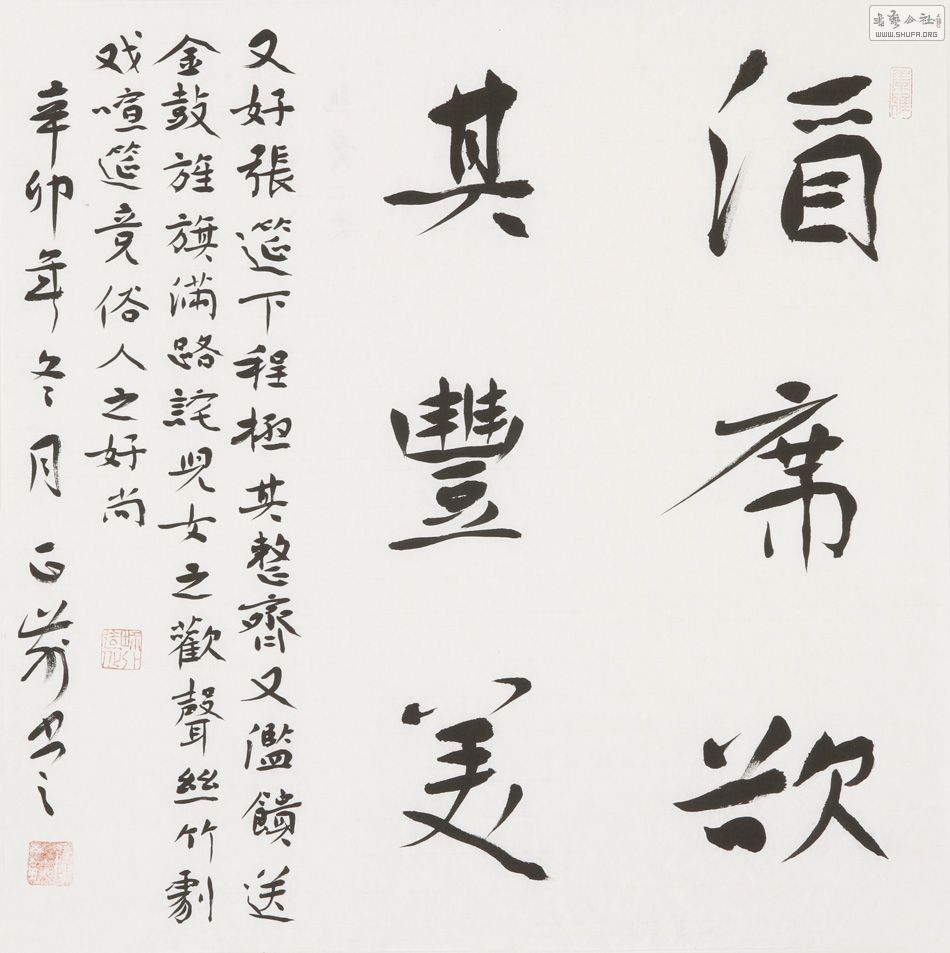 書藝公社
WWW.SHUFA.ORG
酒席欲
其豐美
又好張筵下程極其整齊又濫饋送
金鼓旌旗滿路詫兒女之歡聲絲竹劇
戏喧筵竟俗人之好尚
辛卯年冬月正书之